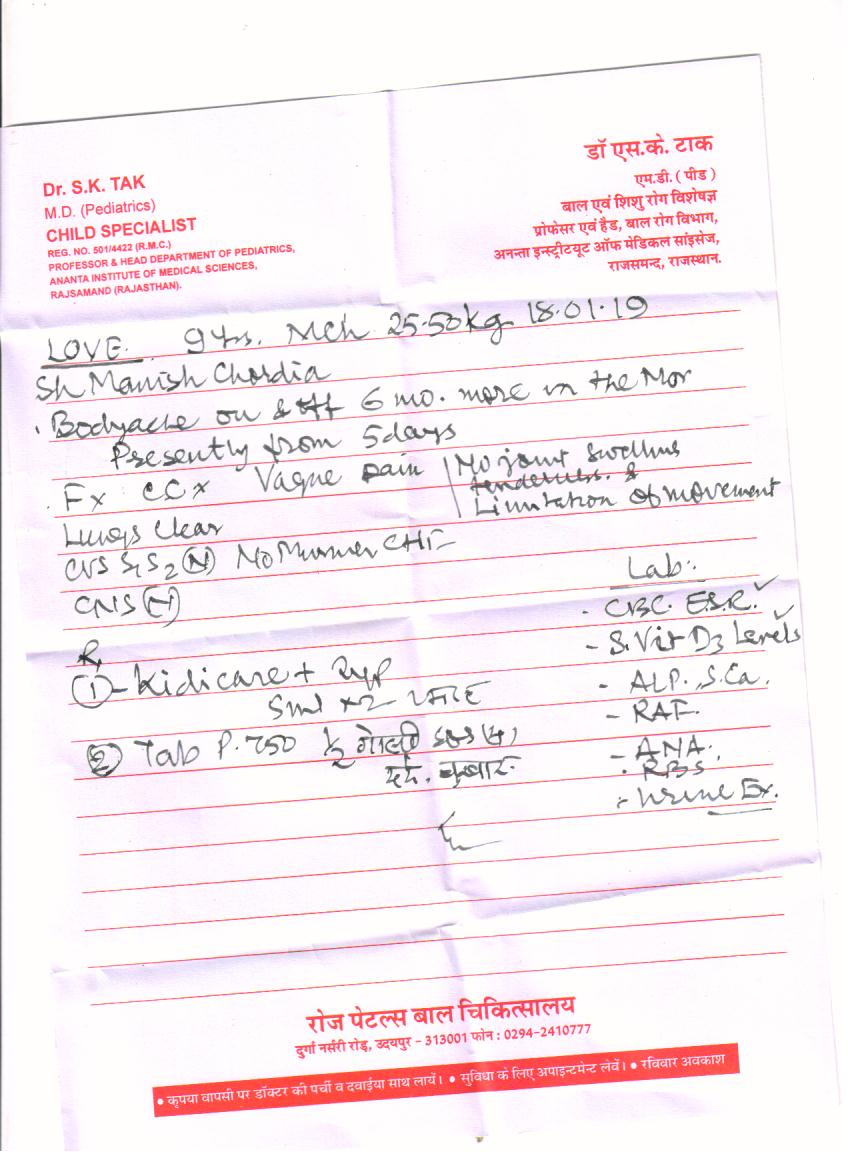 Dr. S.K. TAK
M.D. (Pediatrics)
CHILD SPECIALIST
REG. NO. 501/4422 (R.M.C.)
PROFESSOR & HEAD DEPARTMENT OF PEDIATRICS,
ANANTA INSTITUTE OF MEDICAL SCIENCES,
RAJSAMAND (RAJASTHAN).
डॉ एस.के. टाक
एम.डी. ( पीड )
बाल एवं शिशु रोग विशेषज्ञ
प्रोफेसर एवं हैड, बाल रोग विभाग,
अनन्ता इन्स्टीटयूट ऑफ मेडिकल सांइसेज,
राजसमन्द, राजस्थान.
LOVE. 9 Yrs. Mch 25.50kg 18.01.19
Sh Manish Chordia
. Bodyache on & off 6 mo. more in the Mor
Presently from 5days
. Ex CCx Vague Pain
No joint swellings
tenderness. &
Limitation of movement
Lungs Clear
CVS S1 S2 (N) No Murmer CHF-
CNS (N)
Rx
(1)- Kidicare + Syp
5ml x 2
(2) Tab P. 250 1/2 गोली SOS
दर्द. बुखार
Lab:
- CBC. E.S.R.
- S. Vit D3 Levels
- ALP., S.Ca.
- RAF.
- ANA.
. RBS.
- Urine Ex.
रोज पेटल्स बाल चिकित्सालय
दुर्गा नर्सरी रोड़, उदयपुर - 313001 फोन : 0294-2410777
• कृपया वापसी पर डॉक्टर की पर्ची व दवाईया साथ लायें। • सुविधा के लिए अपाइन्टमेन्ट लेवें। • रविवार अवकाश